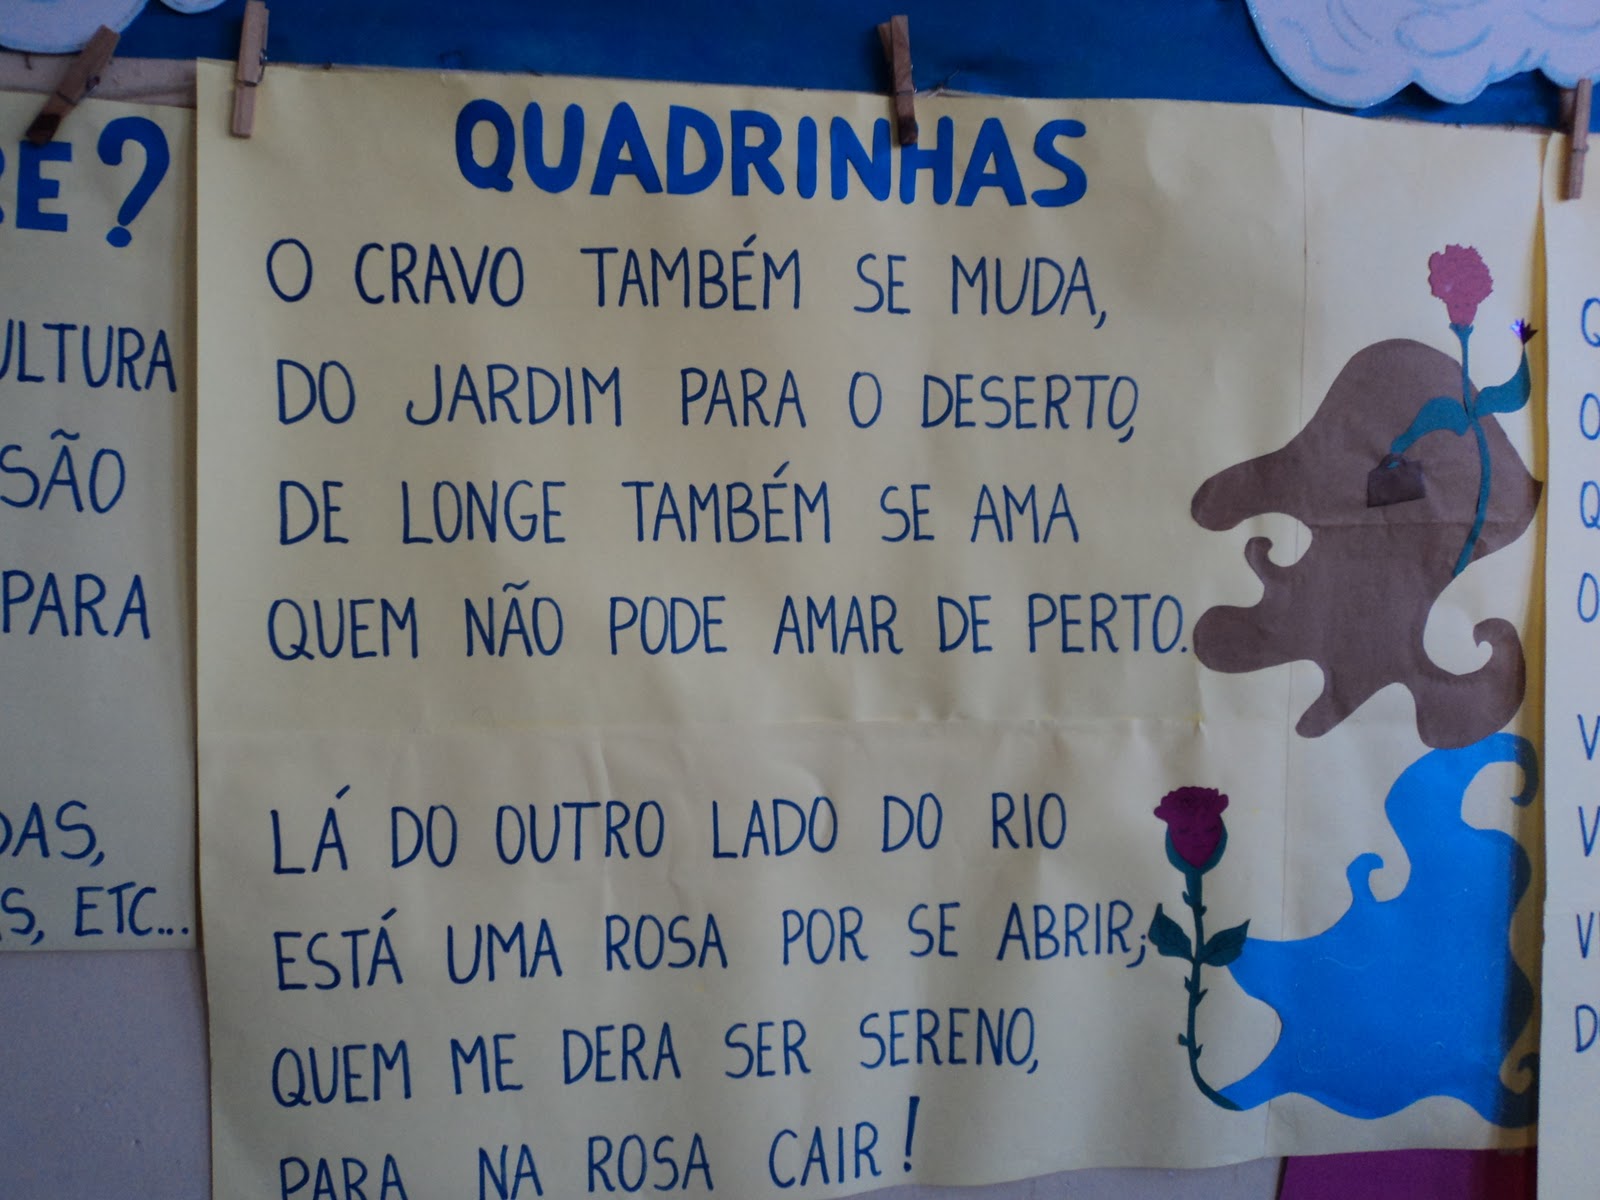 RE?
ULTURA
SÃO
PARA
DAS,
S, ETC...
QUADRINHAS
O CRAVO TAMBÉM SE MUDA,
DO JARDIM PARA O DESERTO,
DE LONGE TAMBÉM SE AMA
QUEM NÃO PODE AMAR DE PERTO.
LÁ DO OUTRO LADO DO RIO
ESTÁ UMA ROSA POR SE ABRIR;
QUEM ME DERA SER SERENO,
PARA NA ROSA CAIR!
Q
O
Q
O
V
V
V
D